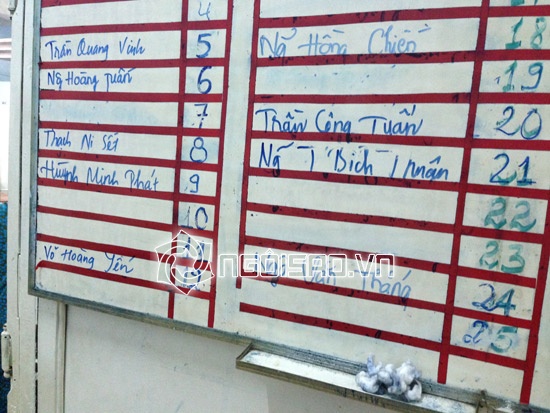 4
Trần Quang Vinh 5
Ng Hoàng Tuấn 6
7
Thạch Ni Sết 8
Huỳnh Minh Phát 9
10
Võ Hoàng Yến
18
Ng Hồng Chiến
19
Trần Công Tuấn 20
Ng T Bích Nhuận 21
22
23
Văn Thắng 24
25
NGÔISAO.VN